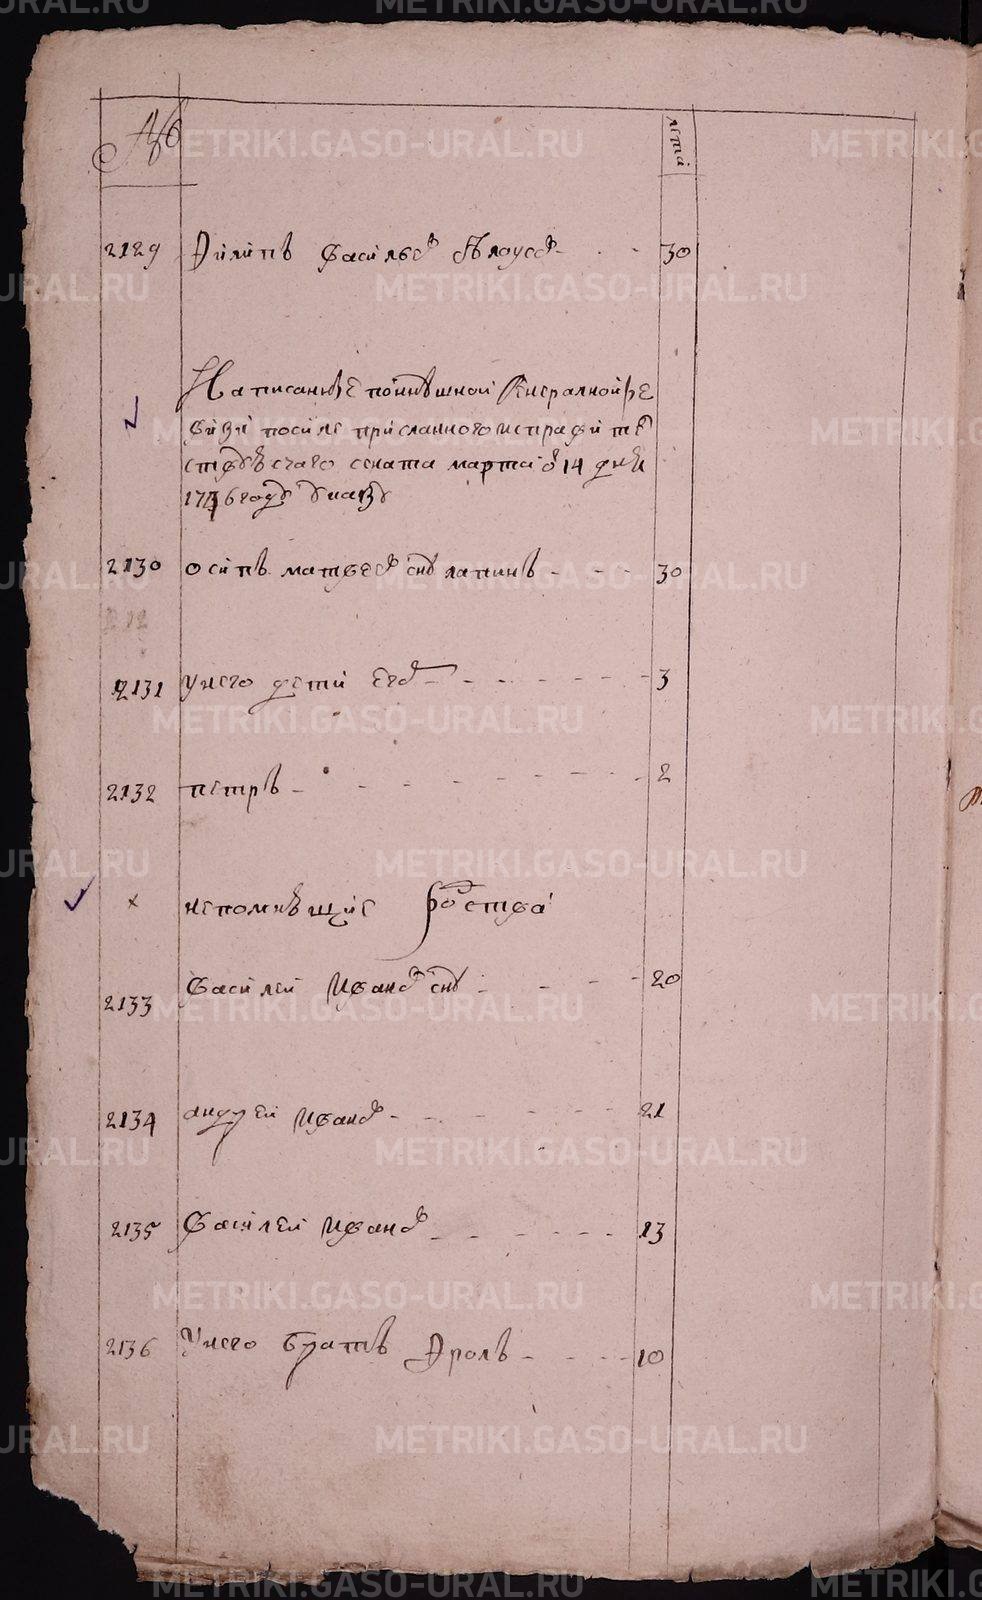 № лета
2129 Филипъ Васильев Белоусов 30
Написанные по нынешной генералной ре
визи после присланного ис правите
ствующаго сената марта от 14 дня
1746 году указу
2130 Осипъ Матвеев снъ Лапинъ 30
2131 У него дети Его 3
2132 петръ 2
непомнящие родства
2133 Василей Иванов снъ 20
2134 андрей Иванов 21
2135 Василей Иванов 13
2136 У него братъ Фролъ 10
METRIKI.GASO-URAL.RU